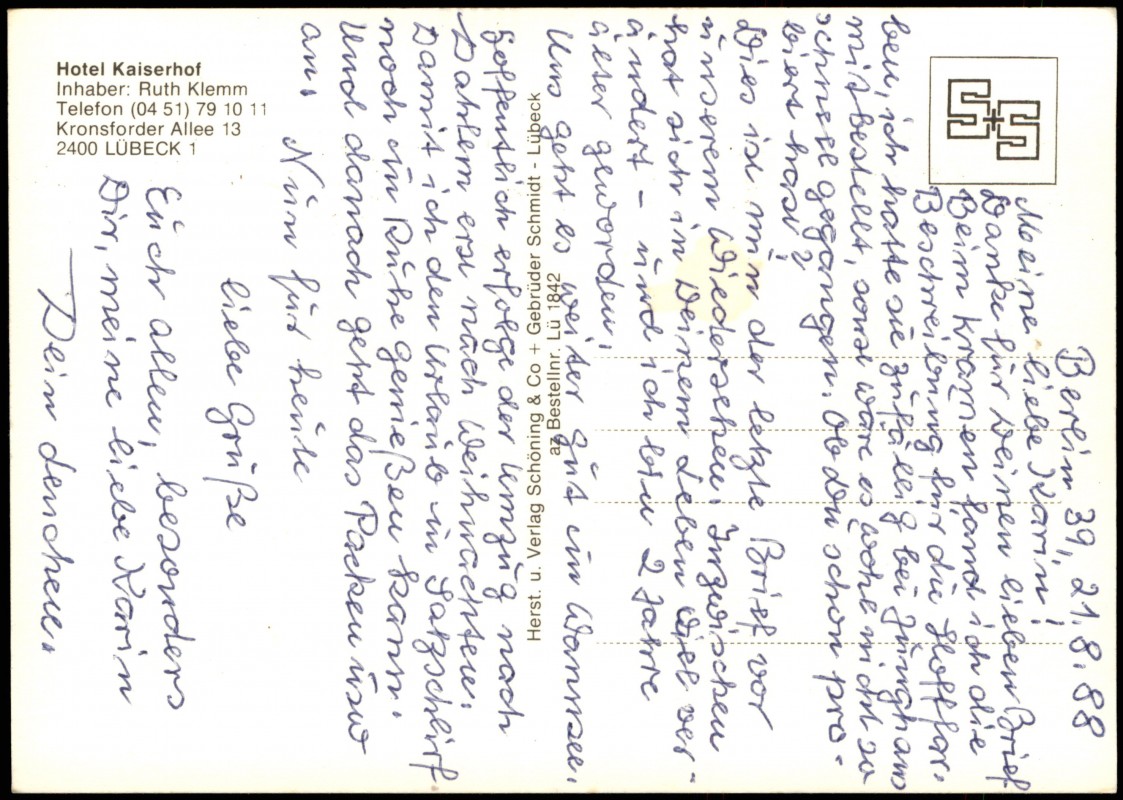 Hotel Kaiserhof
Inhaber: Ruth Klemm
Telefon (04 51) 79 10 11
Kronsforder Allee 13
2400 LÜBECK 1
S+S
Herst. u. Verlag Schöning & Co + Gebrüder Schmidt - Lübeck
az Bestellnr. Lü 1842
Berlin 39, 21.8.88
Meine liebe Karin!
Danke für Deinen lieben Brief
Beim Kramen fand ich die
Beschreibung für die Stoffar-
ben, ich hatte sie zufällig bei Junghans
mitbestellt, sonst wäre es wohl nicht so
schnell gegangen. Ob Du schon pro-
biert hast?
Dies ist nun der letzte Brief vor
unserem Wiedersehen. Inzwischen
hat sich in Deinem Leben viel ver-
ändert - und ich bin 2 Jahre
älter geworden.
Uns geht es weiter gut in Wannsee.
Hoffentlich erfolgt der Umzug nach
Dahlem erst nach Weihnachten.
Damit ich den Urlaub in Salzschlirf
noch in Ruhe genießen kann.
Und danach geht das Packen usw
an.
Nun für heute
liebe Grüße
Euch allen, besonders
Dir, meine liebe Karin
Dein Lenchen.